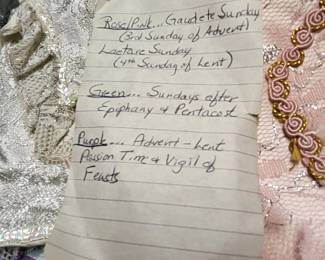 Rose/Pink... Gaudete Sunday
(3rd Sunday of Advent)
Laetare Sunday
(4th Sunday of Lent)
Green... Sundays after
Epiphany & Pentacost
Purple... Advent - Lent
Passion Time & Vigil of
Feasts